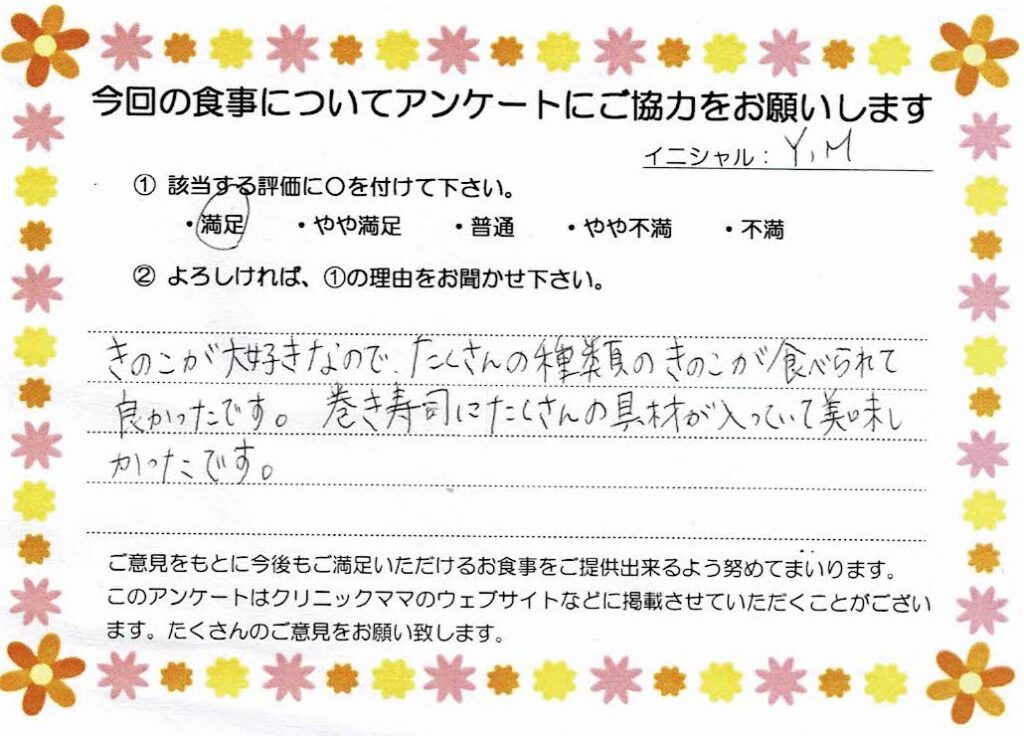 今回の食事についてアンケートにご協力をお願いします
イニシャル：Y,M
① 該当する評価に〇を付けて下さい。
・満足 ・やや満足 ・普通 ・やや不満 ・不満
② よろしければ、①の理由をお聞かせ下さい。
きのこが大好きなので、たくさんの種類のきのこが食べられて
良かったです。 巻き寿司にたくさんの具材が入っていて美味し
かったです。
ご意見をもとに今後もご満足いただけるお食事をご提供出来るよう努めてまいります。
このアンケートはクリニックママのウェブサイトなどに掲載させていただくことがござい
ます。たくさんのご意見をお願い致します。